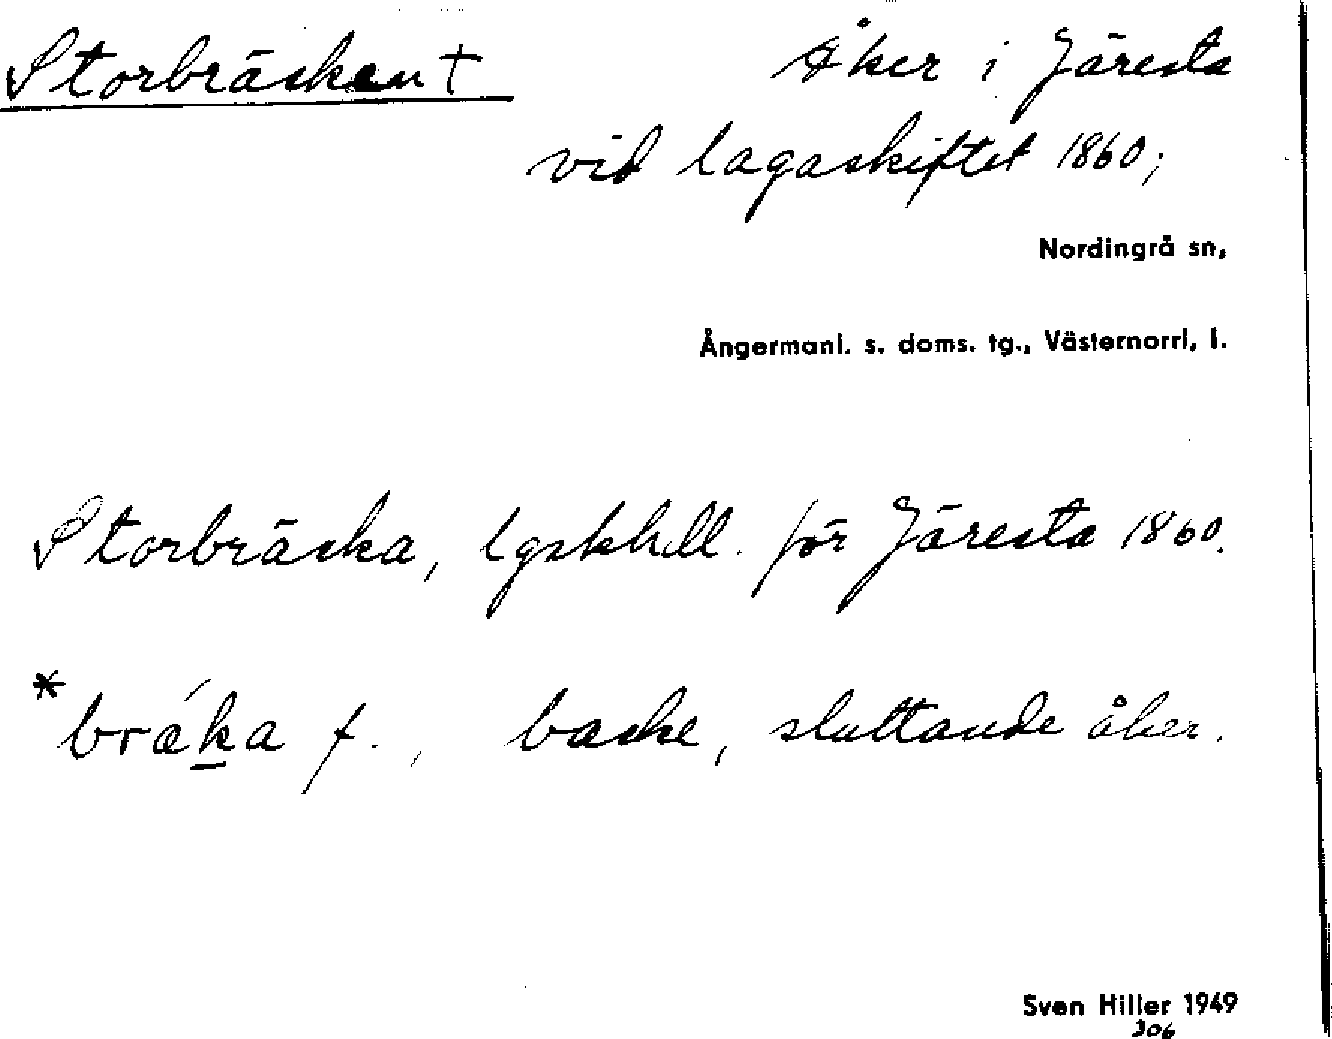 Storbräcken † Åker i Järesta
vid lagaskiftet 1860;
Nordingrå sn,
Ångermanl. s. doms. tg., Västernorrl. l.
Storbräcka, lgskhdl. för Järesta 1860.
*bræ´ka f., backe, sluttande åker.
Sven Hiller 1949
306